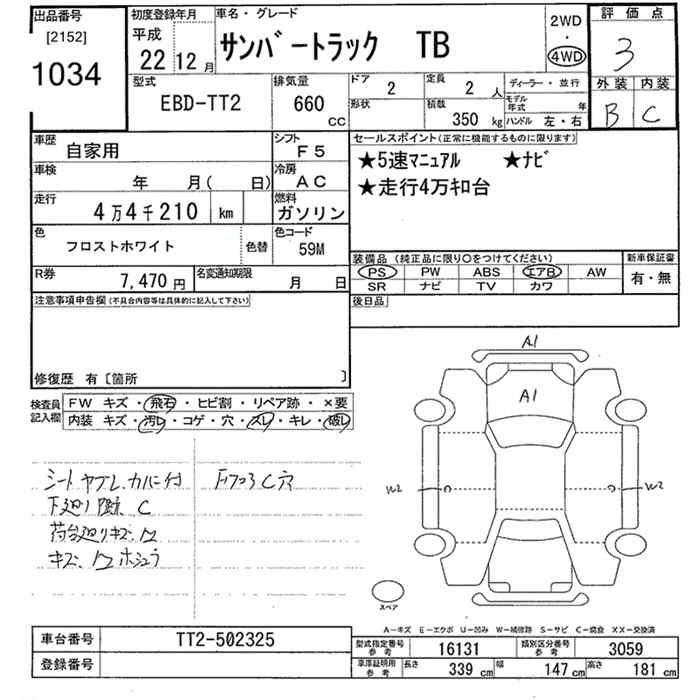 出品番号
[2152]
1034
初度登録年月
平成
22 12 月
車名・グレード
サンバートラック TB
2WD
・
4WD
評価点
3
外装 内装
B C
型式
EBD-TT2
排気量
660
cc
ドア
2
定員
2 人
形状
積載
350 kg
ディーラー・並行
モデル年式 年
ハンドル 左・右
車歴
自家用
シフト
F5
車検
年 月( 日)
冷房
AC
走行
4万4千210 km
燃料
ガソリン
色
フロストホワイト
色替
色コード
59M
R券
7,470 円
名変通知期限
月 日
セールスポイント(正常に機能するものに限ります)
★5速マニュアル ★ナビ
★走行4万キロ台
装備品 (純正品に限り○をつけてください)
PS PW ABS エアB AW
SR ナビ TV カワ
新車保証書
有・無
後日品
注意事項申告欄(不具合内容等は具体的に記入して下さい)
修復歴 有〔箇所 〕
検査員記入欄
FW キズ・飛石・ヒビ割・リペア跡・×要
内装 キズ・汚レ・コゲ・穴・スレ・キレ・破レ
シートヤブレ
下廻リ C
荷台廻リキズ W
キズ W
C穴
A1
A1
W2
W2
スペア
A―キズ E―エクボ U―凹み W―補修跡 S―サビ C―腐食 XX―交換済
車台番号
TT2-502325
登録番号
型式指定番号 参考
16131
類別区分番号 参考
3059
車庫証明用 参考
長さ 339 cm 幅 147 cm 高さ 181 cm